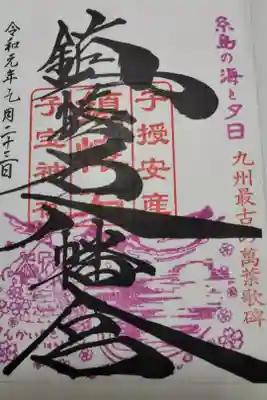 糸島の海と夕日
九州最古の萬葉歌碑
子授安産
鎮懐石八幡宮
令和元年
月二十三日